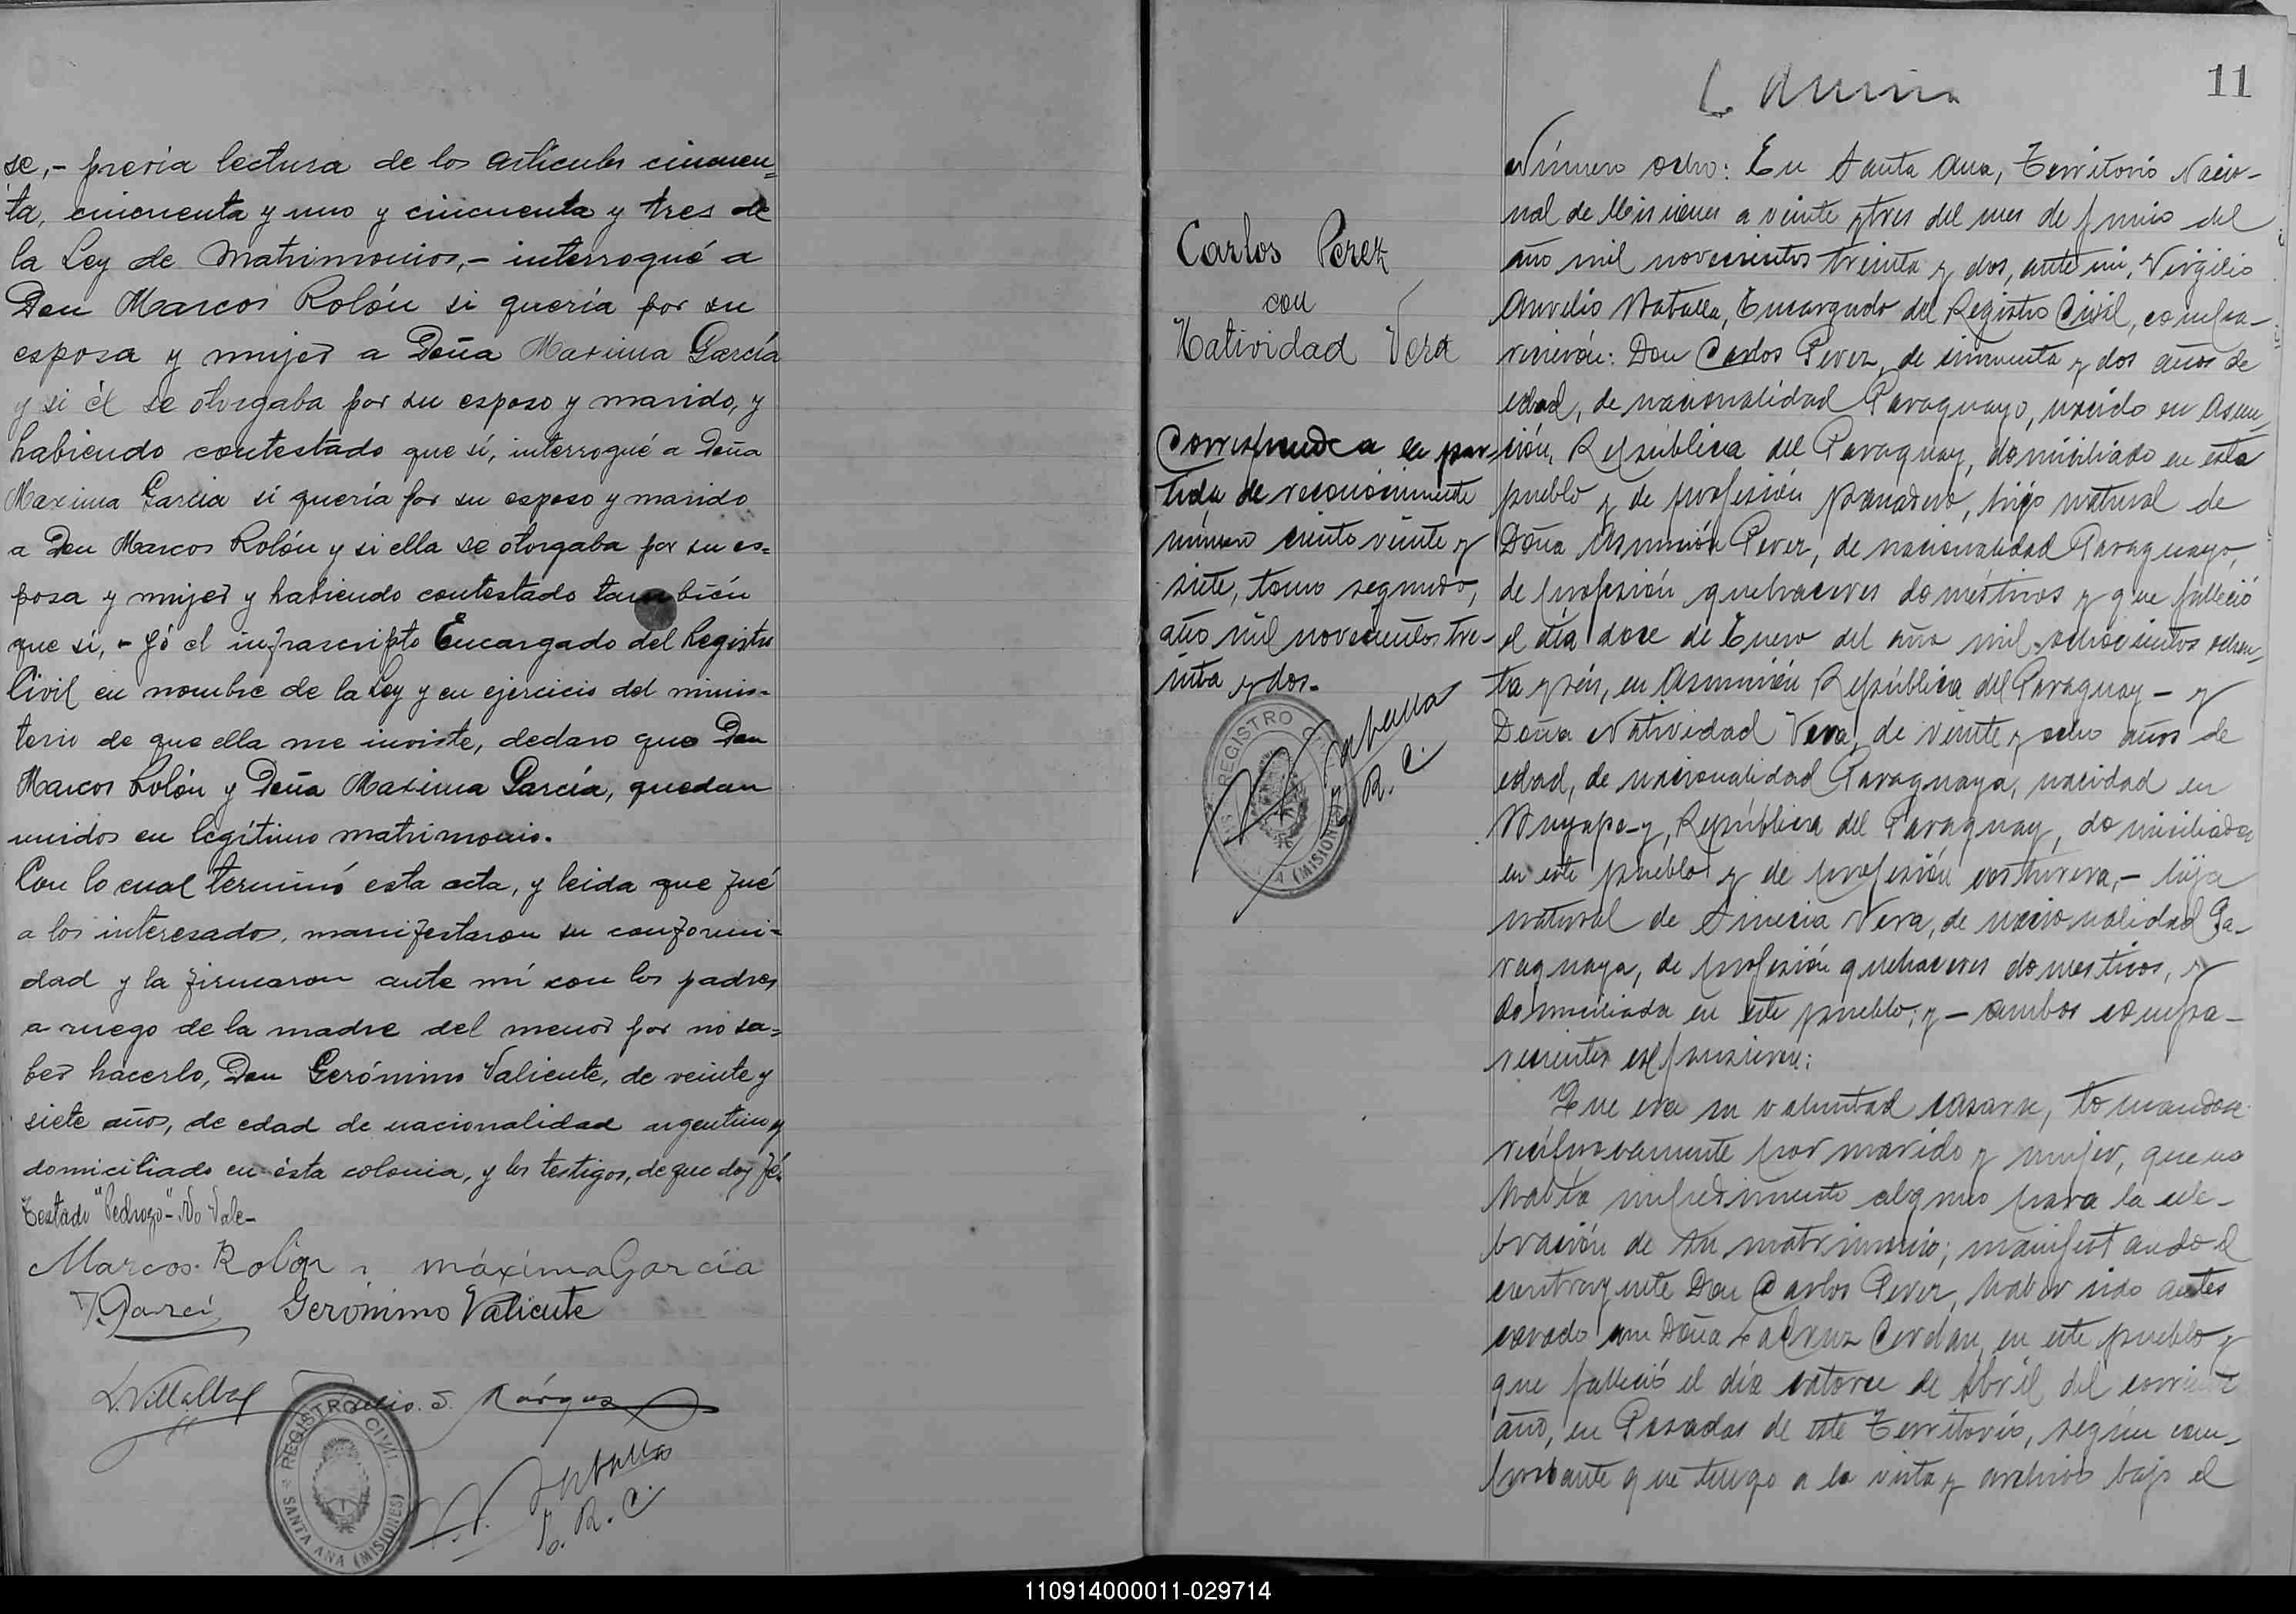 se,- previa lectura de los artículos cincuen=
ta, cincuenta y uno y cincuenta y tres de
la Ley de Matrimonios,- interrogué a
Don Marcos Rolón si quería por su
esposa y mujer a Doña Maxima García
y si él se otorgaba por su esposo y marido, y
habiendo contestado que sí, interrogué a Doña
Maxima Garcia si quería por su esposo y marido
a Don Marcos Rolón y si ella se otorgaba por su es=
posa y mujer y habiendo contestado también
que sí, - Yó el infrascripto Encargado del Registro
Civil en nombre de la Ley y en ejercicio del minis=
terio de que ella me inviste, declaro que Don
Marcos Rolón y Doña Maxima García, quedan
unidos en legítimo matrimonio.
Con lo cual terminó esta acta, y leida que fué
a los interesados, manifestaron su conformi=
dad y la firmaron ante mí con los padres
a ruego de la madre del menor por no sa=
ber hacerlo, Don Gerónimo Valiente, de veinte y
siete años, de edad de nacionalidad argentino y
domiciliado en ésta colonia, y los testigos, de que doy fé.
Testado "Pedrozo"- No Vale-
Marcos Rolon máxima García
Gerónimo Valiente
L. Villalba S. Vargas
REGISTRO CIVIL
SANTA ANA (MISIONES)
E. R. C.
11
Carlos Perez
con
Natividad Vera
Corresponde a la par-
tida de reconocimiento
número ciento veinte y
siete, tomo segundo,
año mil novecientos tre-
inta y dos.-
R. C.
REGISTRO
(MISIONES)
Número ocho: En Santa Ana, Territorio Nacio-
nal de Misiones a veinte y tres del mes de junio del
año mil novecientos treinta y dos, ante mi, Virgilio
Aurelio Batalla, Encargado del Registro Civil, compa-
recieron: Don Carlos Perez, de cincuenta y dos años de
edad, de nacionalidad Paraguayo, nacido en Asun-
ción, República del Paraguay, domiciliado en este
pueblo y de profesión panadero, hijo natural de
Doña Asunción Perez, de nacionalidad Paraguaya,
de profesión quehaceres domésticos y que falleció
el día doce de Enero del año mil ochocientos ochen-
ta y seis, en Asunción República del Paraguay - y
Doña Natividad Vera, de veinte y ocho años de
edad, de nacionalidad Paraguaya, nacidad en
República del Paraguay, domiciliada
en este pueblo y de profesión costurera,- hija
natural de Vera, de nacionalidad Pa-
raguaya, de profesión quehaceres domesticos, y
domiciliada en este pueblo; y - ambos compa-
recientes expusieron:
Que era su voluntad casarse, tomandose
recíprocamente por marido y mujer, que no
había impedimento alguno para la cele-
bración de su matrimonio; manifestando el
contrayente Don Carlos Perez, haber sido antes
casado con Doña LaCruz Cerdan, en este pueblo y
que falleció el día catorce de Abril del corriente
año, en Posadas de este Territorio, según com-
probante que tengo a la vista y archivo bajo el
110914000011-029714